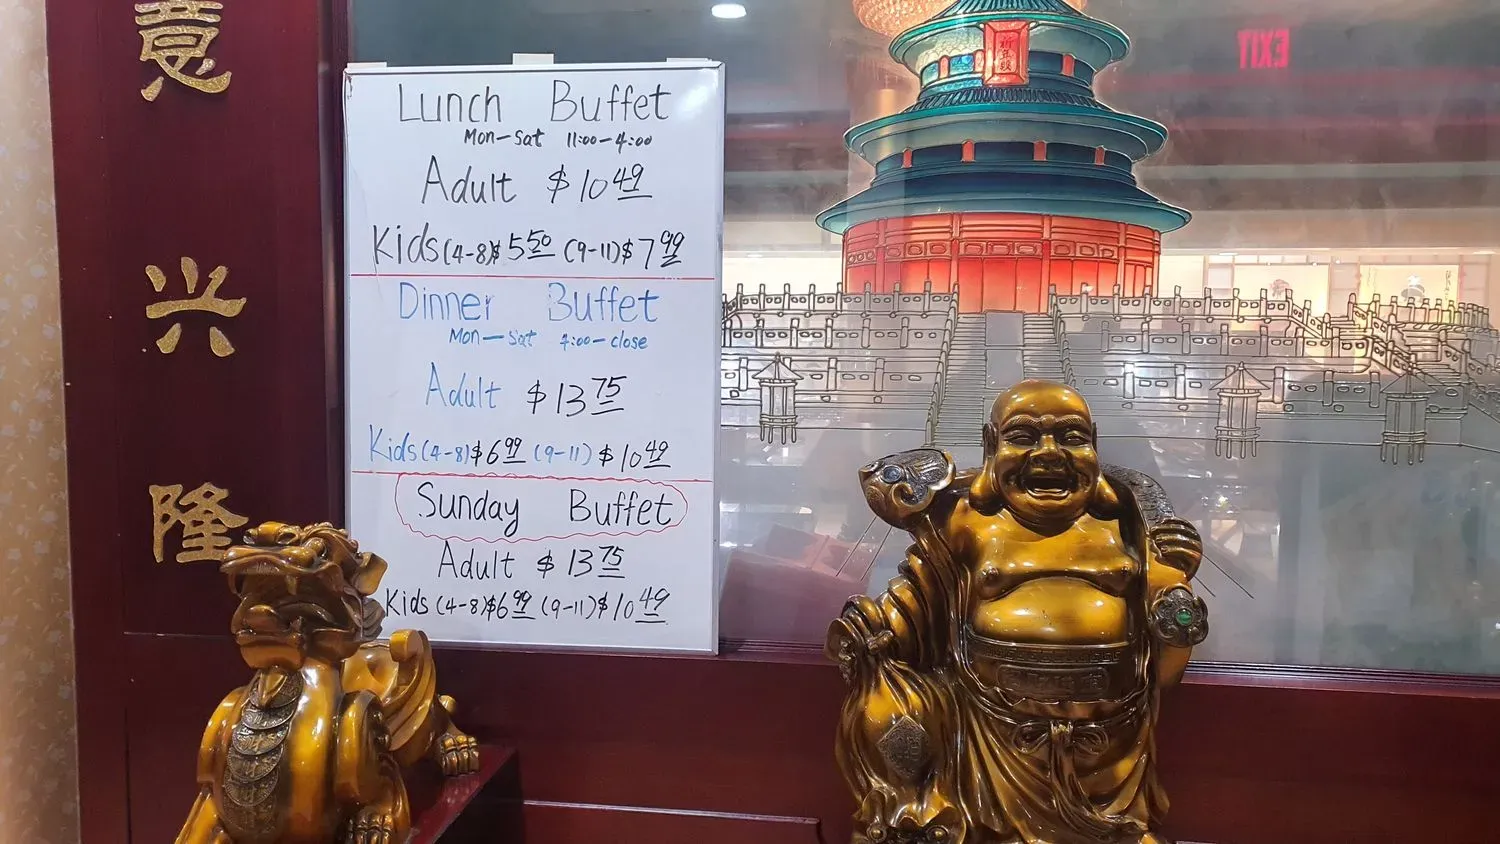 意
兴
隆
Lunch Buffet
Mon-Sat 11:00-4:00
Adult $10.49
Kids (4-8)$5.50 (9-11)$7.99
Dinner Buffet
Mon-Sat 4:00-close
Adult $13.75
Kids (4-8)$6.99 (9-11) $10.49
Sunday Buffet
Adult $13.75
Kids (4-8)$6.99 (9-11)$10.49
祈年殿
EXIT